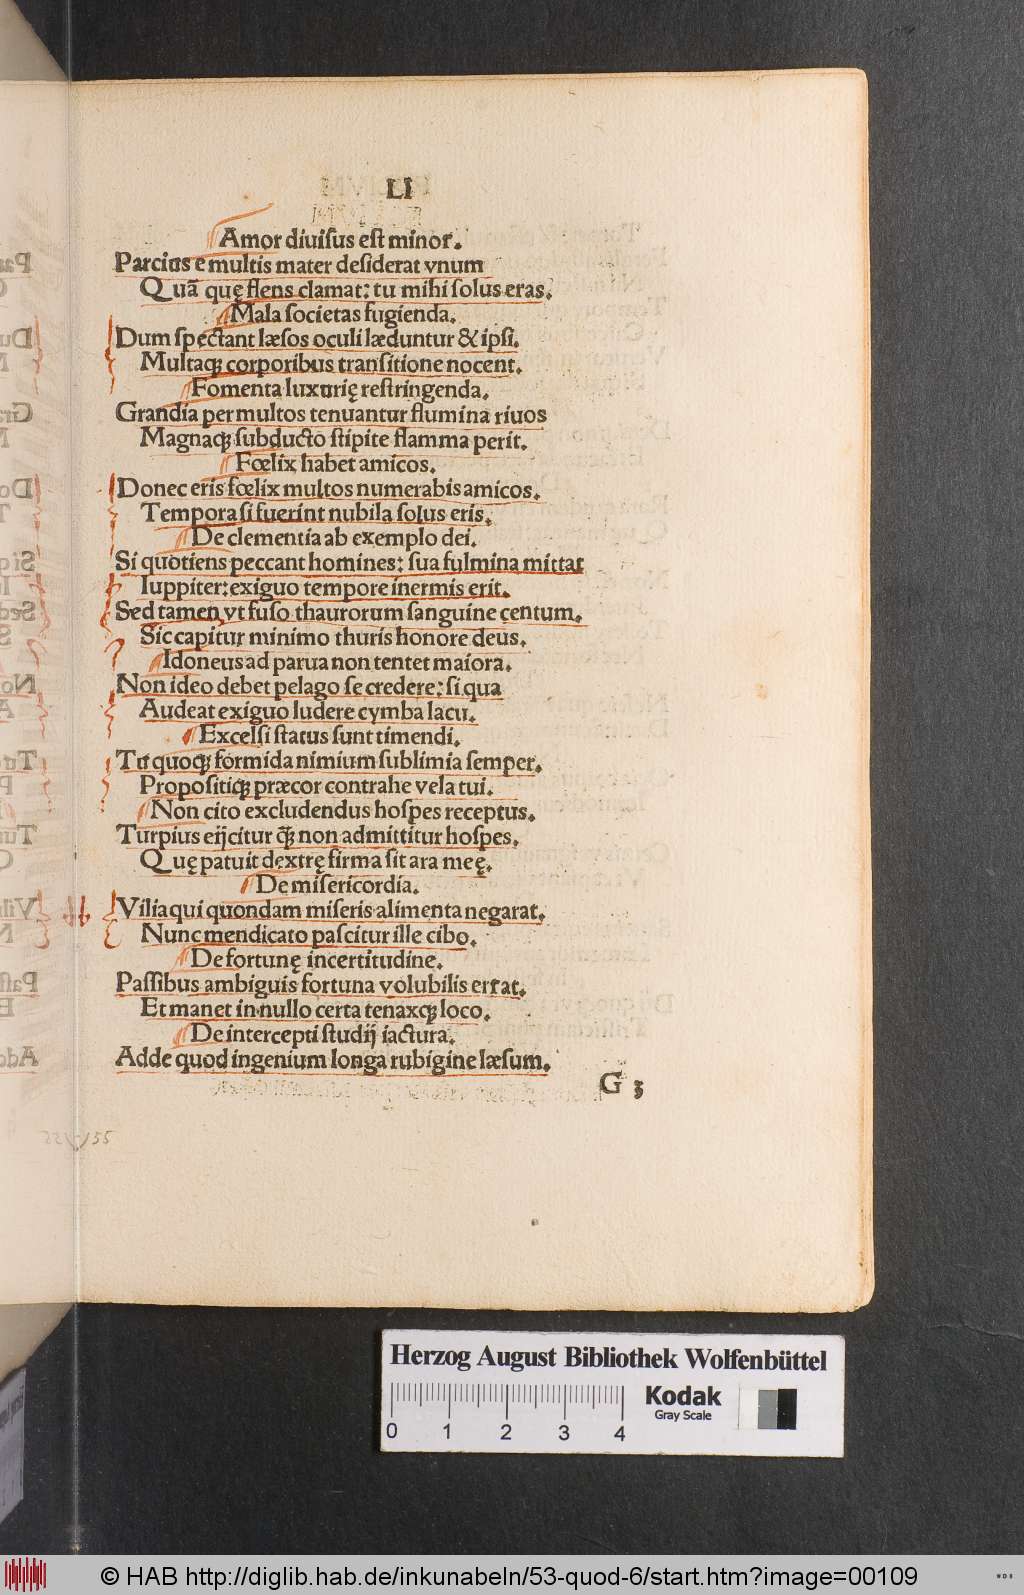 LI
Amor diuisus est minor.
Parcius e multis mater desiderat vnum
Quã quę flens clamat: tu mihi solus eras.
Mala societas fugienda.
Dum spectant læsos oculi læduntur & ipsi.
Multaqꝫ corporibus transitione nocent.
Fomenta luxurię restringenda.
Grandia per multos tenuantur flumina riuos
Magnaqꝫ subducto stipite flamma perit.
Fœlix habet amicos.
Donec eris fœlix multos numerabis amicos.
Tempora si fuerint nubila solus eris.
De clementia ab exemplo dei.
Si quotiens peccant homines: sua fulmina mittat
Iuppiter: exiguo tempore inermis erit.
Sed tamen vt fuso thaurorum sanguine centum.
Sic capitur minimo thuris honore deus.
Idoneus ad parua non tentet maiora.
Non ideo debet pelago se credere: si qua
Audeat exiguo ludere cymba lacu.
Excelsi status sunt timendi.
Tu quoqꝫ formida nimium sublimia semper.
Propositiqꝫ præcor contrahe vela tui.
Non cito excludendus hospes receptus.
Turpius eijcitur qꝫ̃ non admittitur hospes.
Quę patuit dextrę firma sit ara meę.
De misericordia.
Vilia qui quondam miseris alimenta negarat.
Nunc mendicato pascitur ille cibo.
De fortunę incertitudine.
Passibus ambiguis fortuna volubilis errat.
Et manet in nullo certa tenaxqꝫ loco.
De intercepti studij iactura.
Adde quod ingenium longa rubigine læsum.
G 3
Herzog August Bibliothek Wolfenbüttel
0 1 2 3 4
Kodak
Gray Scale
© HAB http://diglib.hab.de/inkunabeln/53-quod-6/start.htm?image=00109